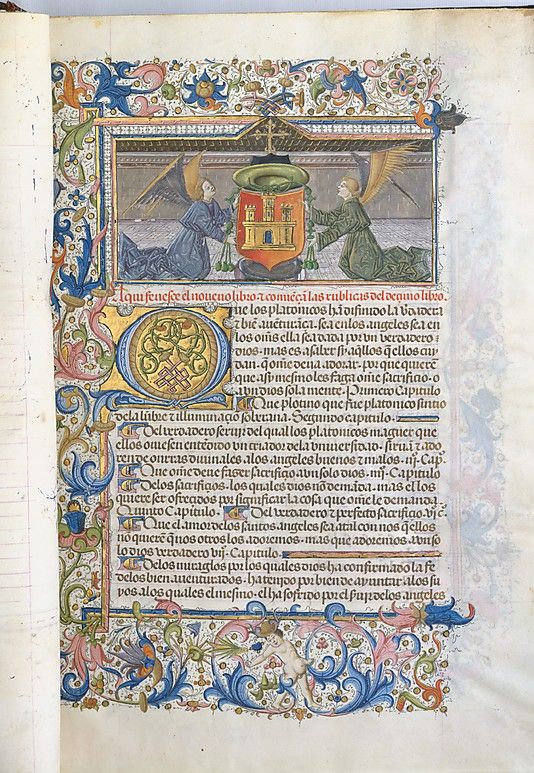 Aqui fenesçe el noueno libro ⁊ comieçã las rublicas del deçimo libro.
Que los platonicos hã difinido la v̉dadera
⁊ biẽ auẽturãça. sea en los angeles sea en
los oms̃ ella sea dada por vn verdadero
dios. mas es a saber sy aq̃llos que ellos cuy
dan. q̃ om̃e deua adorar. por que quierẽ
que asy mesmo les faga om̃e sacrifiçio. o
a vn dios sola mente. Primero Capitulo
Que plotino que fue platonico sintio
de la lũbre ⁊ illuminaçiõ soberana. Segundo capitulo.
Del verdadero seruiçio del qual los platonicos maguer que
ellos ouiesen entẽdido vn criador de la vniuersidad. siruiẽ ⁊ ado
ren de onrras diuinales. a los angeles buenos ⁊ malos. iij. Capitulo
Que om̃e deue fazer sacrifiçio a vn solo dios. iiij. Capitulo
De los sacrifiçios. los quales dios nõ demãda. mas el los
quiere ser ofreçidos por significar la cosa que om̃e le demanda
Quinto Capitulo. Del verdadero ⁊ perfecto sacrifiçio. vj. c̃
Que el amor de los santos angeles sea atal con nos q̃ ellos
nõ quierẽ q̃ nos otros los adoremos. mas que adoremos a vn so
lo dios verdadero vij. Capitulo.
De los miraglos por los quales dios ha confirmado la fe
de los bien auenturados. ha tenido por bien de ayuntar a los su
yos a los quales el mesmo. el ha sofrido por el de los angeles